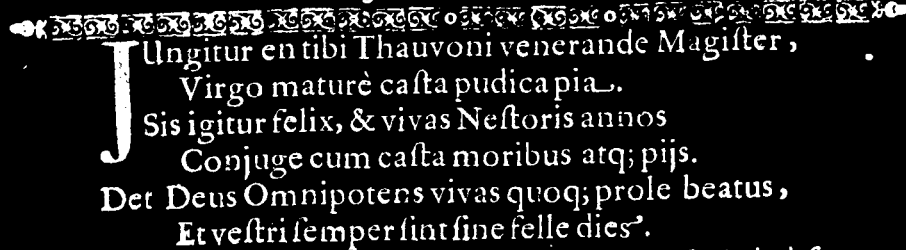 JUngitur en tibi Thauvoni venerande Magiſter,
Virgo maturè caſta pudica pia.
Sis igitur felix, & vivas Neſtoris annos
Conjuge cum caſta moribus atq; pijs.
Det Deus Omnipotens vivas quoq; prole beatus,
Et veſtri ſemper ſint ſine felle dies.